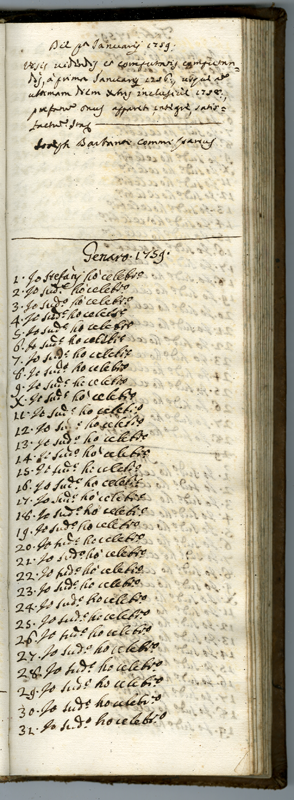 Die pa Januarij 1759.
Visis videndis et computatis computan=
dis, a prima Januarij 1758., usque ad
ultimam diem Xbris inclusive 1758.,
oneri apparet integre satis=
factum
Joseph Barbarot Commissarius
Genaro. 1759.
1. Io Stefani hò celebrto
2. Io sudo. hò celebrto
3. Io sudo. hò celebrto
4. Io sudo. hò celebrto
5. Io sudo. hò celebrto
6. Io sudo. hò celebrto
7. Io sudo. hò celebrto
8. Io sudo. hò celebrto
9. Io sudo. hò celebrto
X. Io sudo. hò celebrto
11. Io sudo. hò celebrto
12. Io sudo. hò celebrto
13. Io sudo. hò celebrto
14. Io sudo. hò celebrto
15. Io sudo. hò celebrto
16. Io sudo. hò celebrto
17. Io sudo. hò celebrto
18. Io sudo. hò celebrto
19. Io sudo. hò celebrto
20. Io sudo. hò celebrto
21. Io sudo. hò celebrto
22. Io sudo. hò celebrto
23. Io sudo. hò celebrto
24. Io sudo. hò celebrto
25. Io sudo. hò celebrto
26. Io sudo. hò celebrto
27. Io sudo. hò celebrto
28. Io sudo. hò celebrto
29. Io sudo. hò celebrto
30. Io sudo. hò celebrto
31. Io sudo. hò celebrto